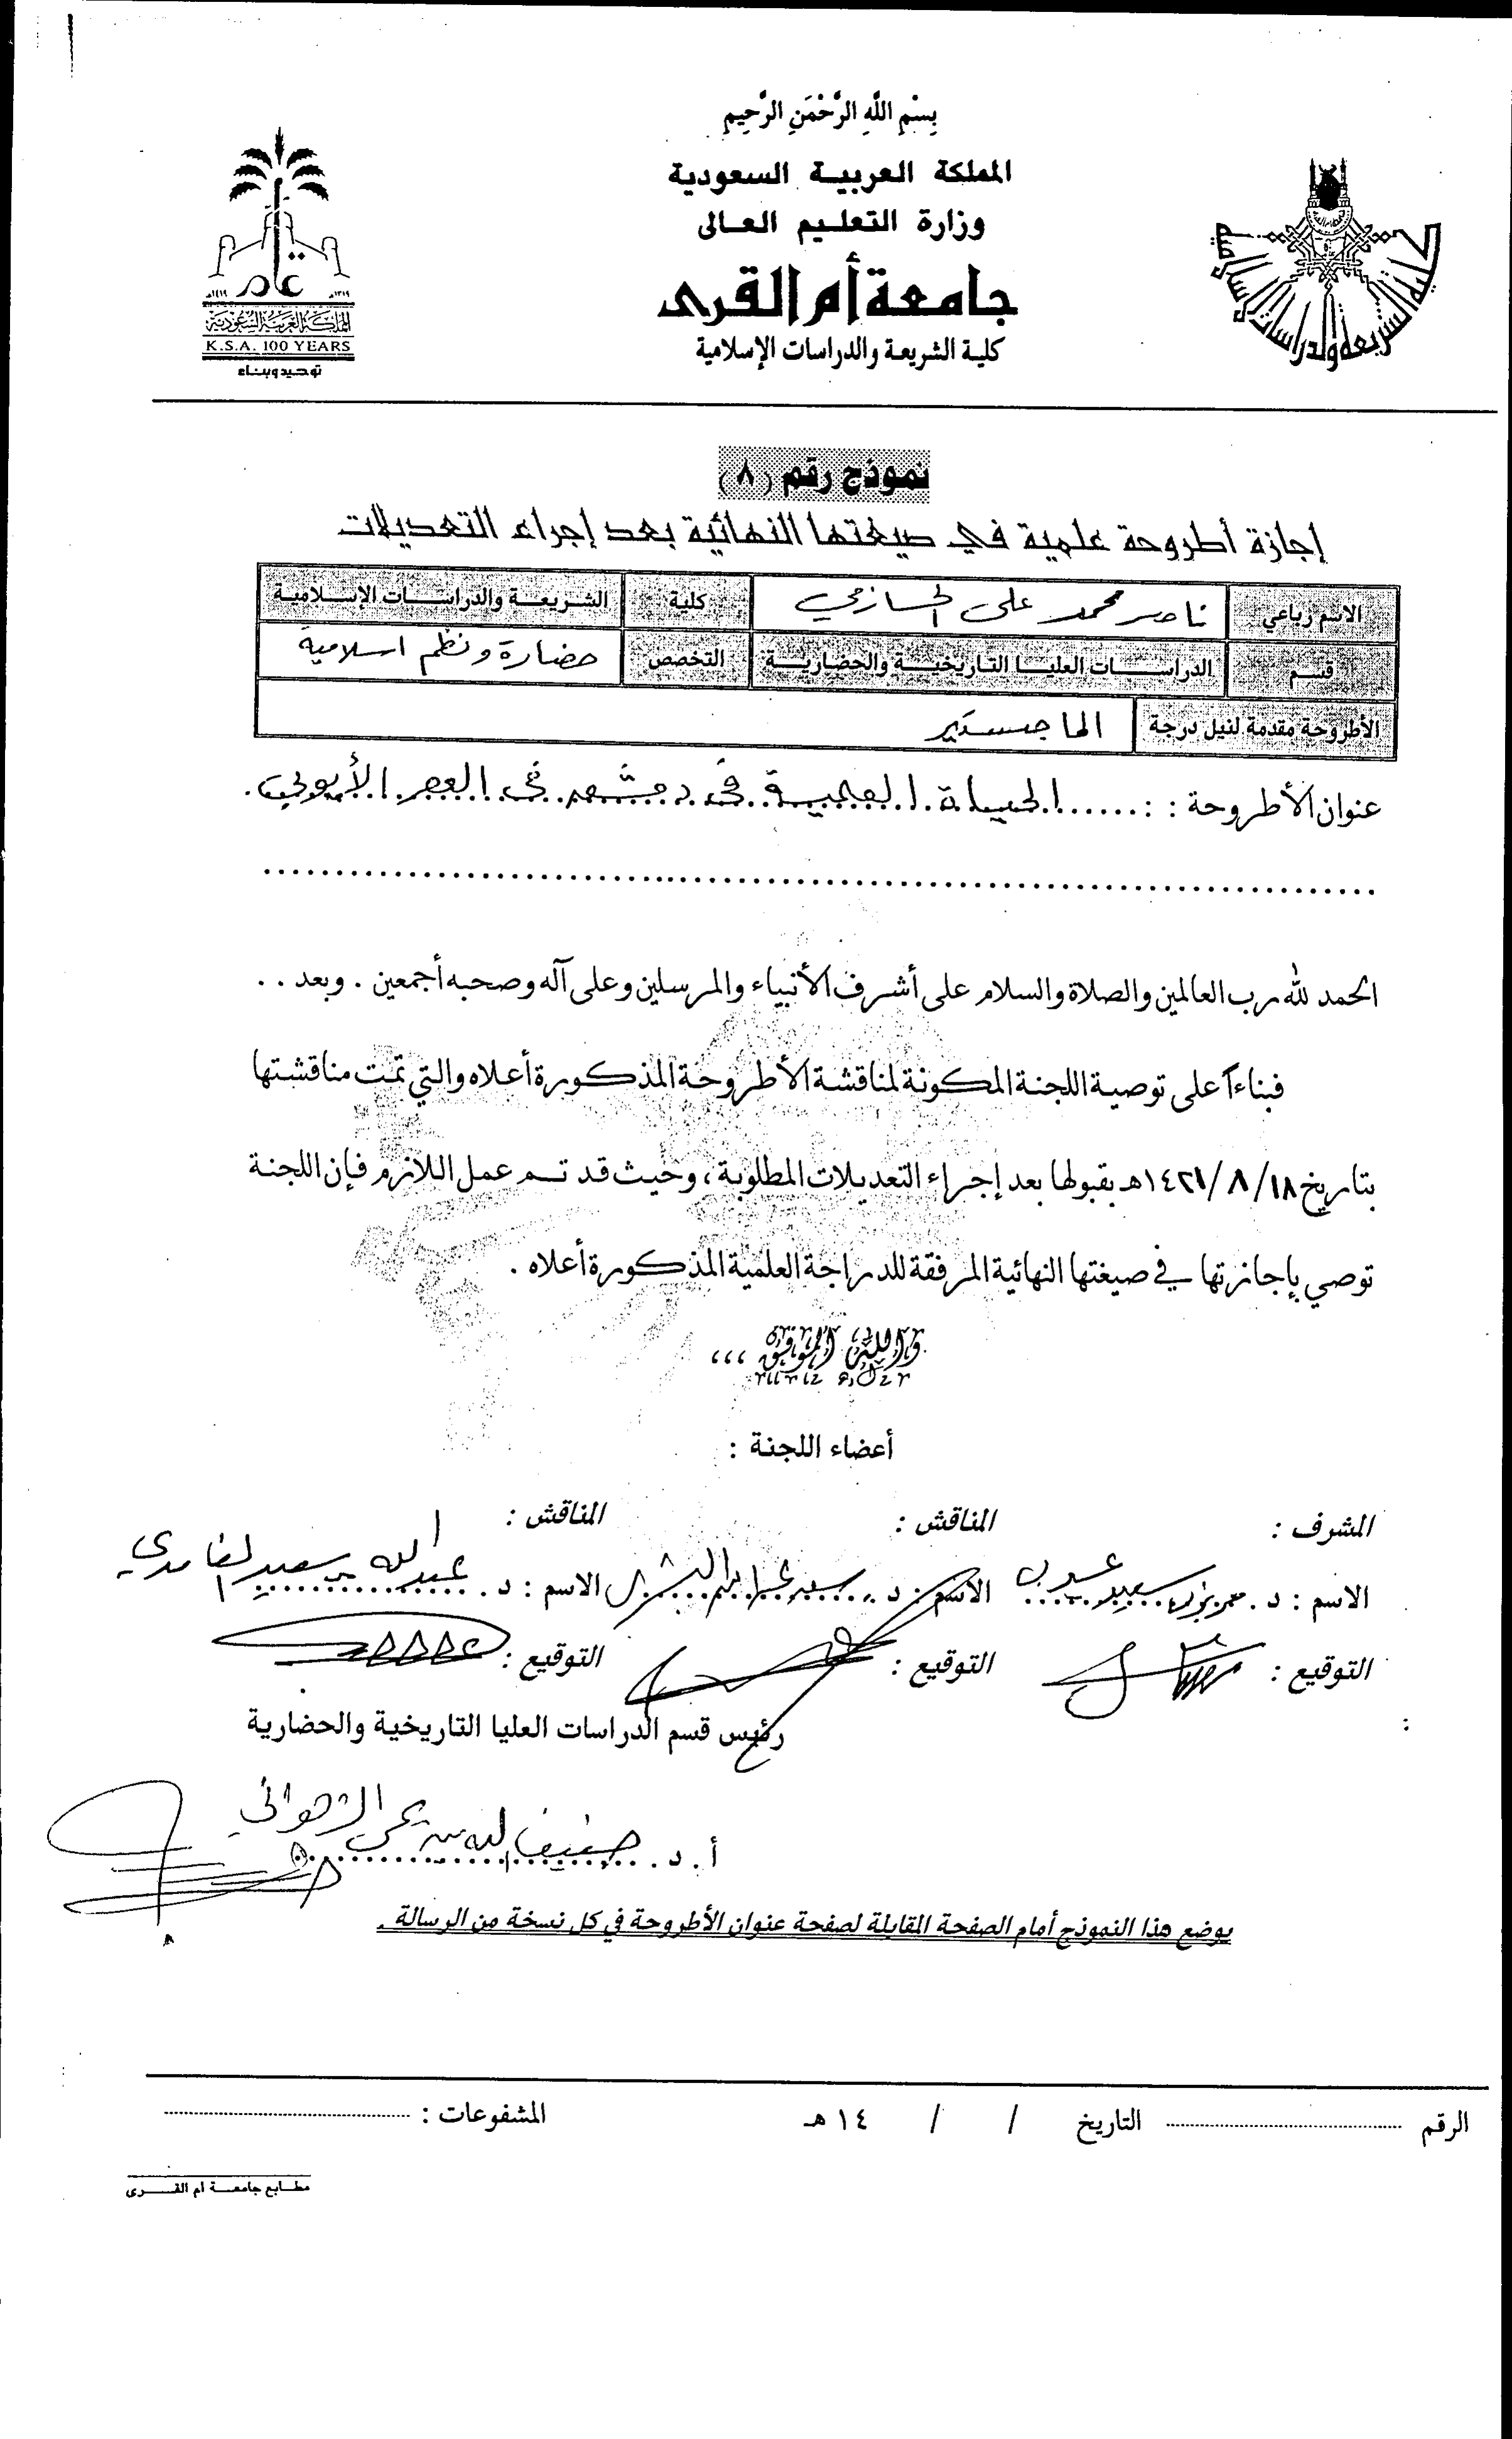 بِسْمِ اللَّهِ الرَّحْمَنِ الرَّحِيمِ
المملكة العربية السعودية
وزارة التعليم العالى
جامعة أم القرى
كلية الشريعة والدراسات الإسلامية
١٣١٩هـ ١٤١٩هـ
المملكة العربية السعودية
K.S.A. 100 YEARS
توحيد وبناء
نموذج رقم (٨)
إجازة أطروحة علمية في صيغتها النهائية بعد إجراء التعديلات
الاسم رباعي ناصر محمد على الحازمي كلية الشريعة والدراسات الإسلامية
قسم الدراسات العليا التاريخية والحضارية التخصص حضارة ونظم اسلامية
الأطروحة مقدمة لنيل درجة الماجستير
عنوان الأطروحة : : ...... الحياة العلمية في دمشق في العصر الأيوبي .
الحمد لله رب العالمين والصلاة والسلام على أشرف الأنبياء والمرسلين وعلى آله وصحبه أجمعين . وبعد . .
فبناءاً على توصية اللجنة المكونة لمناقشة الأطروحة المذكورة أعلاه والتي تمت مناقشتها
بتاريخ ١٨/ ٨ /١٤٢١هـ بقبولها بعد إجراء التعديلات المطلوبة ، وحيث قد تم عمل اللازم فإن اللجنة
توصي بإجازتها في صيغتها النهائية المرفقة للدراجة العلمية المذكورة أعلاه .
والله الموفق ،،،
أعضاء اللجنة :
المشرف : المناقش : المناقش :
الاسم : د. سعيد الاسم : د. الاسم : د. عبد الله سعيد الغامدي
التوقيع : التوقيع : التوقيع :
رئيس قسم الدراسات العليا التاريخية والحضارية
أ . د . ضيف الله بن يحي الزهراني
يوضع هذا النموذج أمام الصفحة المقابلة لصفحة عنوان الأطروحة في كل نسخة من الرسالة .
الرقم التاريخ / / ١٤ هـ المشفوعات :
مطابع جامعة ام القرى